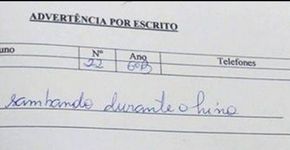 ADVERTÊNCIA POR ESCRITO
uno Nº Ano Telefones
22 6ºB
sambando durante o hino